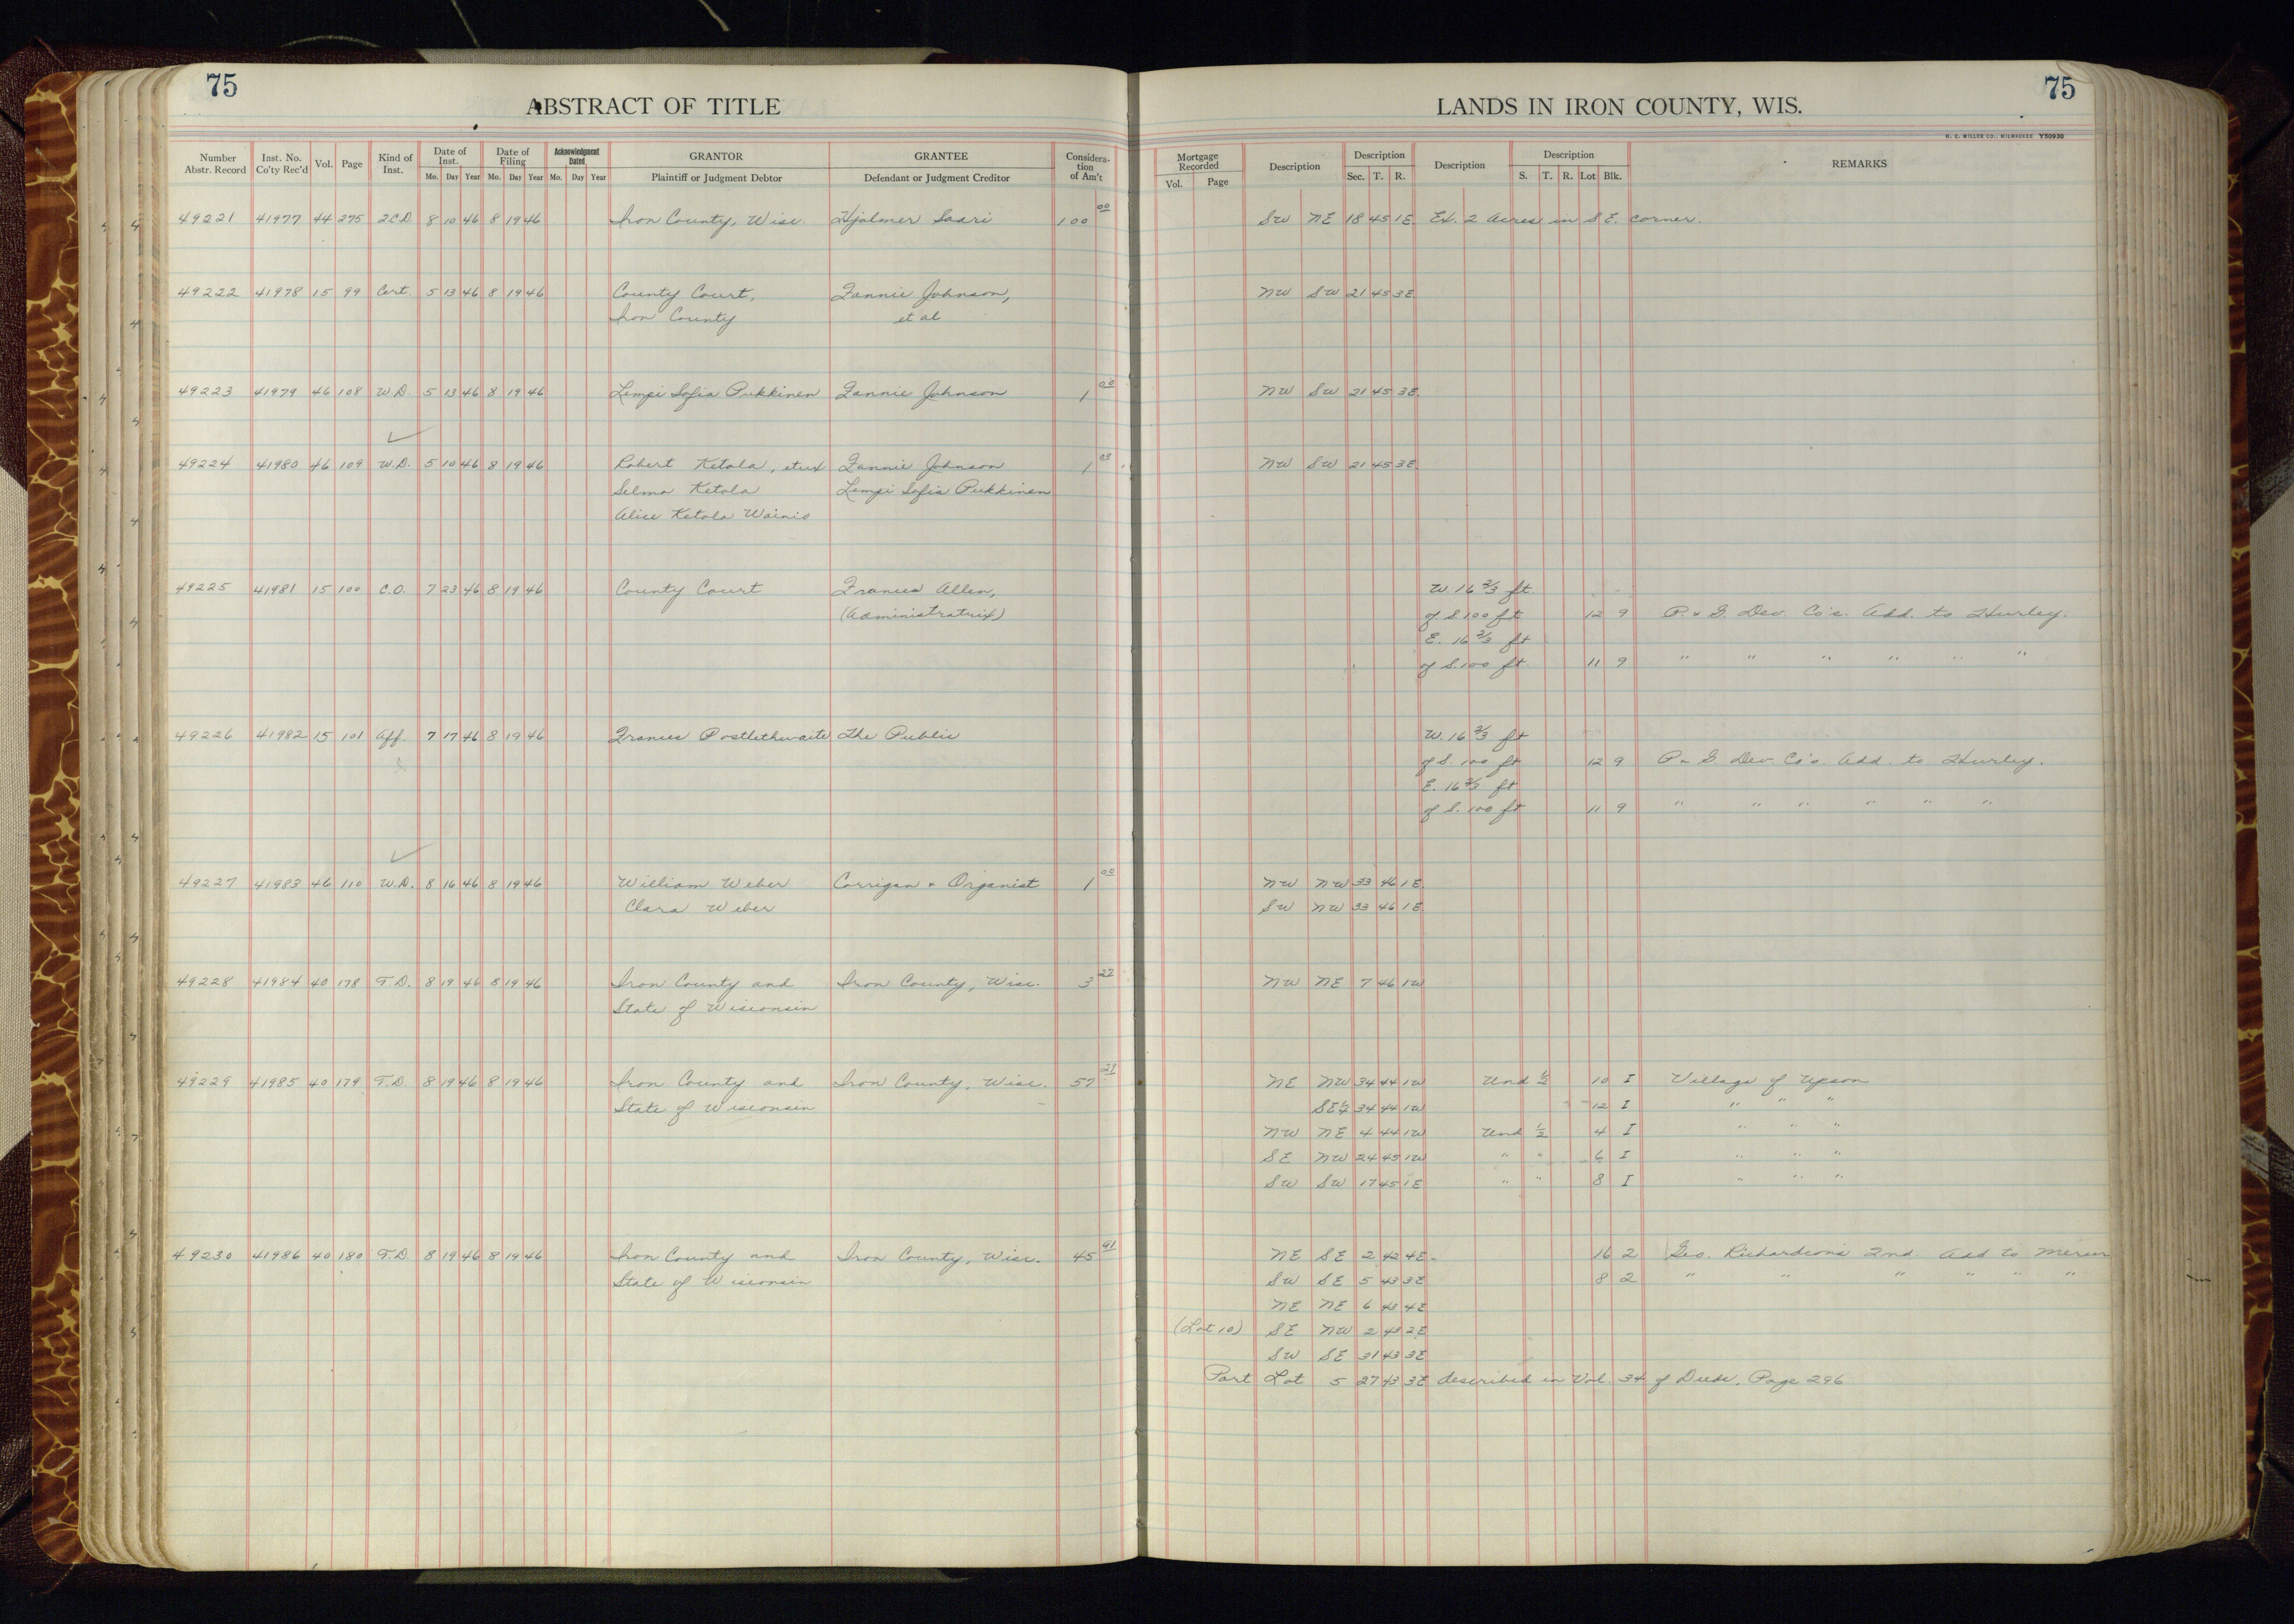 75
ABSTRACT OF TITLE
Number Abstr. Record | Inst. No. Co'ty Rec'd | Vol. | Page | Kind of Inst. | Date of Inst. Mo. Day Year | Date of Filing Mo. Day Year | Acknowledgment Dated Mo. Day Year | GRANTOR Plaintiff or Judgment Debtor | GRANTEE Defendant or Judgment Creditor | Consideration of Am't
75
LANDS IN IRON COUNTY, WIS.
H. C. MILLER CO., MILWAUKEE Y50930
Mortgage Recorded Vol. Page | Description | Description Sec. T. R. | Description | Description S. T. R. Lot Blk. | REMARKS
49221 41977 44 275 2CD 8 10 46 8 19 46 Iron County, Wisc. Hjalmer Saari 100 00 SW NE 18 45 1E Ex. 2 Acres in S.E. corner.
49222 41978 15 99 Cert. 5 13 46 8 19 46 County Court, Fannie Johnson, NW SW 21 45 3E
Iron County et al
49223 41979 46 108 W.D. 5 13 46 8 19 46 Lempi Sofia Pukkinen Fannie Johnson 1 00 NW SW 21 45 3E
49224 41980 46 109 W.D. 5 10 46 8 19 46 Robert Ketola, etux Fannie Johnson 1 00 NW SW 21 45 3E
Selma Ketola Lempi Sofia Pukkinen
Alice Ketola Wainio
49225 41981 15 100 C.O. 7 23 46 8 19 46 County Court Frances Allen, W. 16 2/3 ft.
(Administratrix) of S. 100 ft 12 9 P. & G. Dev. Co's. Add. to Hurley.
E. 16 2/3 ft
of S. 100 ft 11 9 " " " " " "
49226 41982 15 101 Aff. 7 17 46 8 19 46 Frances Postlethwaite The Public W. 16 2/3 ft
of S. 100 ft 12 9 P & G. Dev Co's. Add. to Hurley.
E. 16 2/3 ft
of S. 100 ft 11 9 " " " " " "
49227 41983 46 110 W.D. 8 16 46 8 19 46 William Weber Corrigan & Organist 1 00 NW NW 33 46 1E
Clara Weber SW NW 33 46 1E
49228 41984 40 178 T.D. 8 19 46 8 19 46 Iron County and Iron County, Wisc. 3 22 NW NE 7 46 1W
State of Wisconsin
49229 41985 40 179 T.D. 8 19 46 8 19 46 Iron County and Iron County, Wisc. 57 21 NE NW 34 44 1W Und 1/2 10 I Village of Upson
State of Wisconsin SE 1/4 34 44 1W 12 I " " "
NW NE 4 44 1W Und 1/2 4 I " " "
SE NW 24 45 1W " " 6 I " " "
SW SW 17 45 1E " " 8 I " " "
49230 41986 40 180 T.D. 8 19 46 8 19 46 Iron County and Iron County, Wisc. 45 91 NE SE 2 42 4E 16 2 Geo. Richardson's 2nd. Add to Mercer
State of Wisconsin SW SE 5 43 3E 8 2 " " " " " "
NE NE 6 43 4E
(Lot 10) SE NW 2 43 2E
SW SE 31 43 3E
Part Lot 5 27 43 3E described in Vol. 34 of Deeds, Page 296